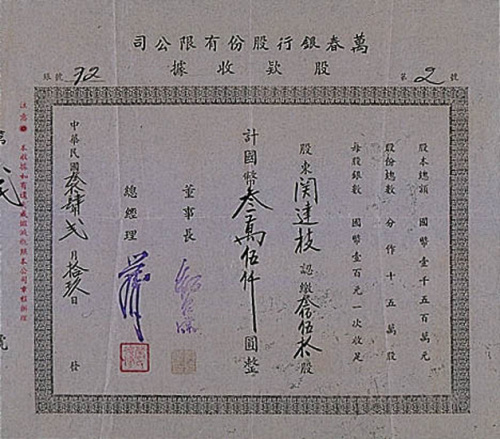 萬春銀行股份有限公司
股款收據
第 2 號
號 92
股本總額 國幣壹千五百萬元
股份總數 分作十五萬股
每股銀數 國幣壹百元一次收足
股東 関達枝 認繳叁佰伍拾股
計國幣叁萬伍仟圓整
董事長
總經理
中華民國叁肆弍月拾玖日 發
注意 本收據如有遺失或毀滅概照本公司章程辦理